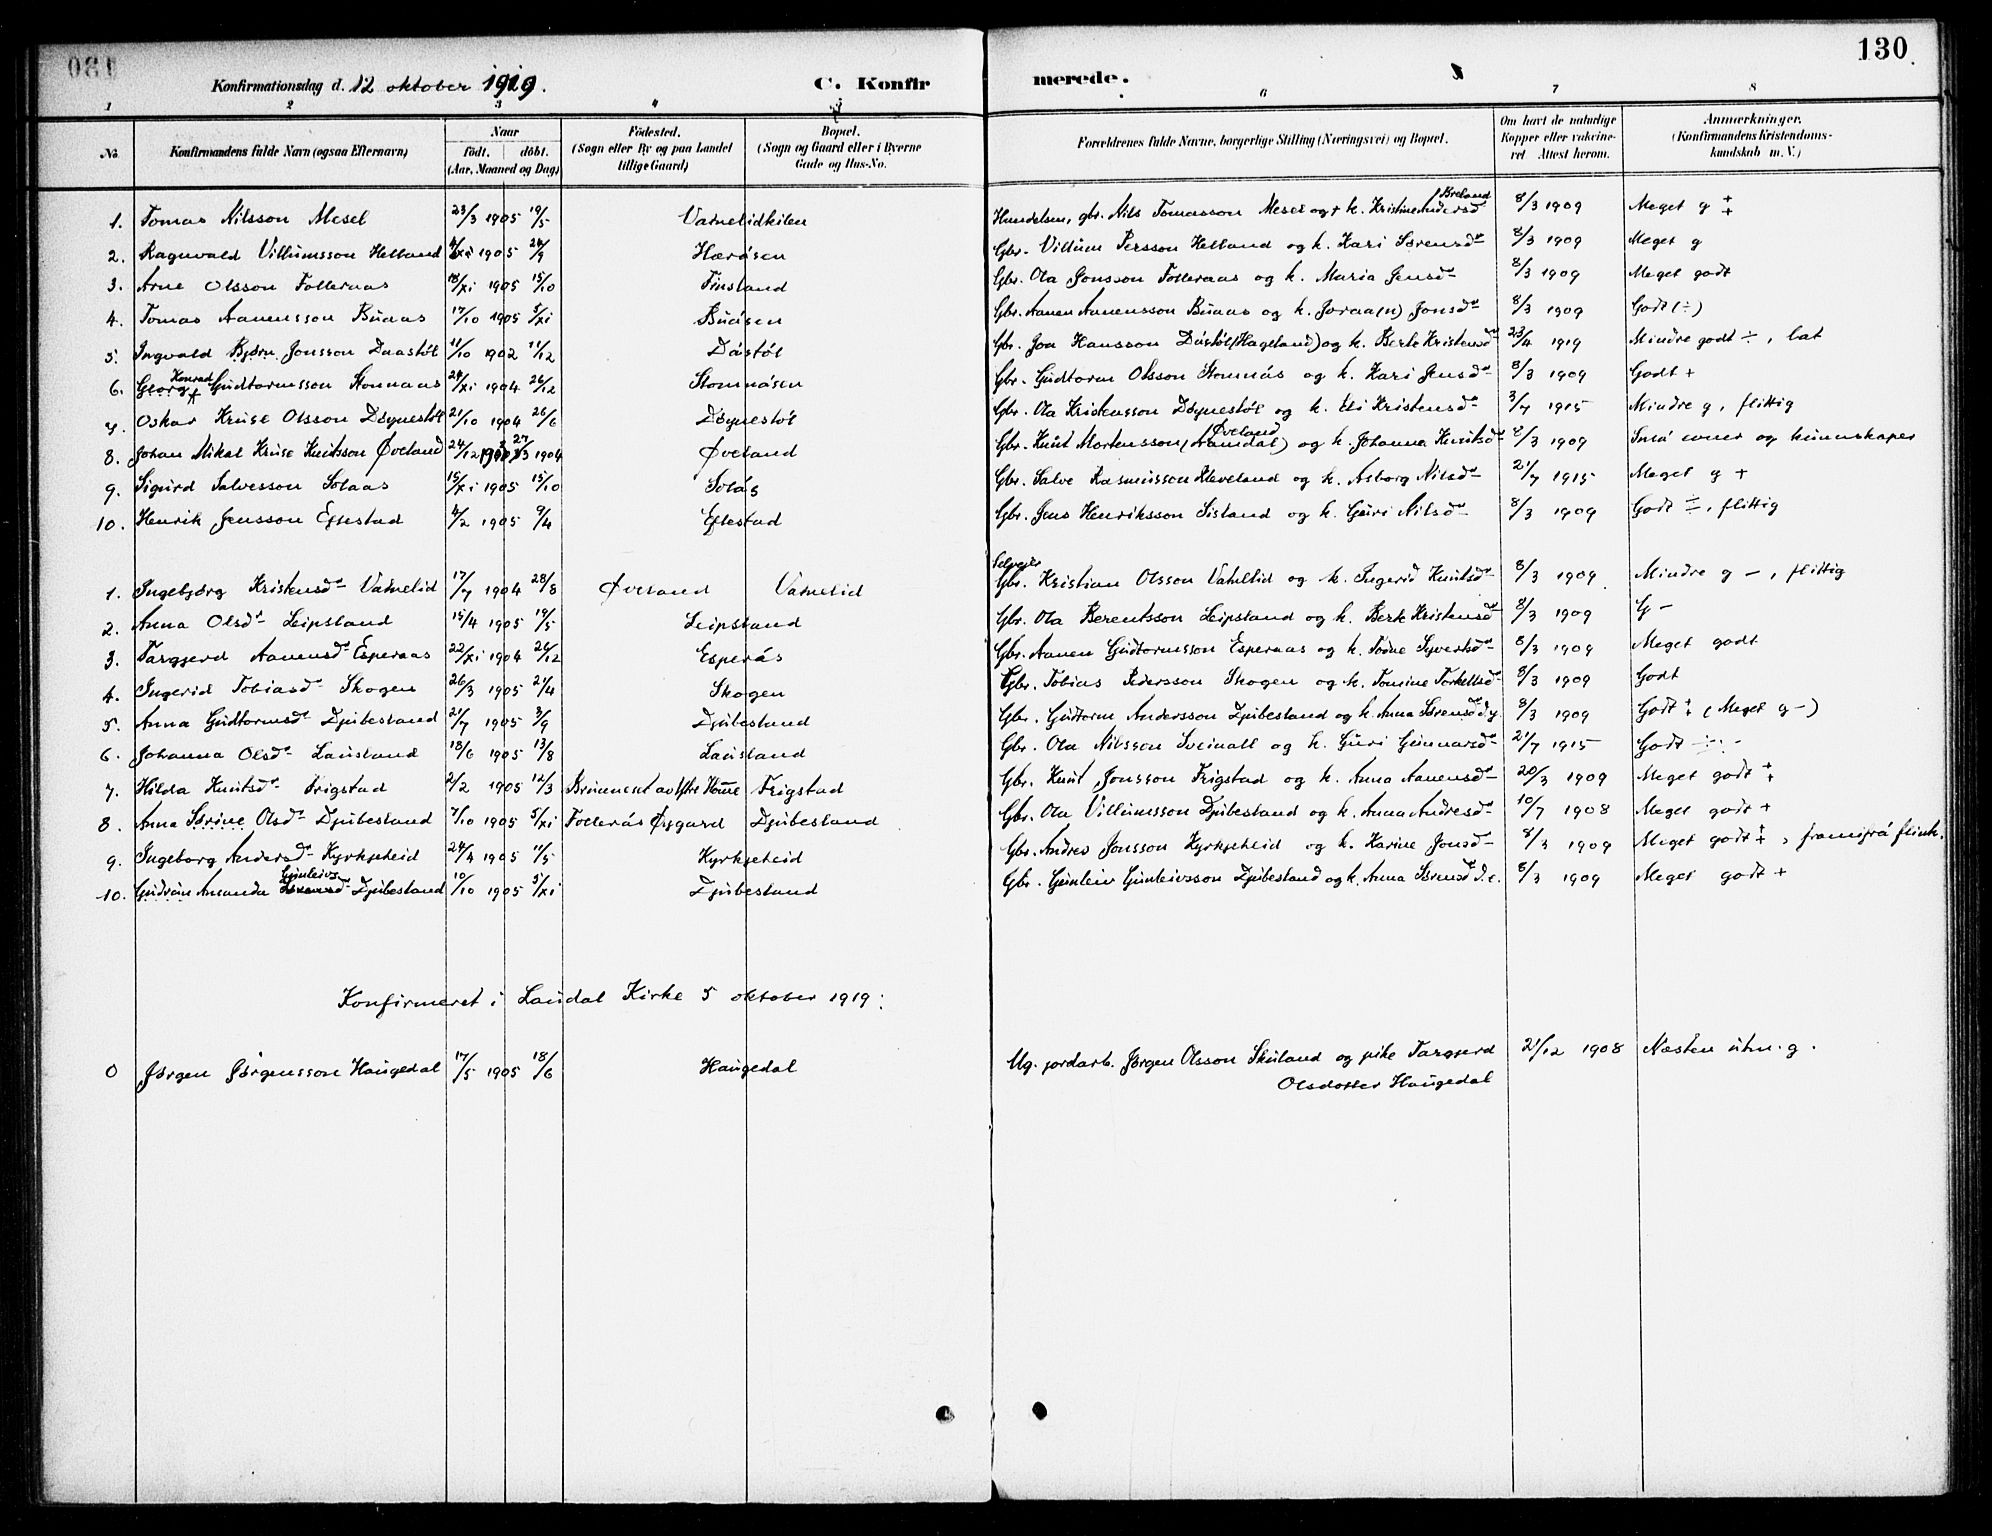 130
Konfirmationsdag d. 12 oktober 1919. C. Konfirmerede.
1 2 3 4 5 6 7 8
No. Konfirmandens fulde Navn (ogsaa Efternavn) Naar født. døbt. (Aar, Maaned og Dag) Födested. (Sogn eller By og paa Landet tillige Gaard) Bopæl. (Sogn og Gaard eller i Byerne Gade og Hus-No. Forældrenes fulde Navne, borgerlige Stilling (Næringsvei) og Bopæl. Om havt de naturlige Kopper eller vakcineret Attest herom. Anmærkninger. (Konfirmandens Kristendomskundskab m. V.)
1. Tomas Nilsson Mesel 23/3 1905 19/5 Vatnelidkilen Handelsm, gbr. Nils Tomasson Mesel og k. Kristine Andersd Breland 8/3 1909 Meget g +
2. Ragnvald Villumsson Helland 1905 24/9 Hæråsen Gbr. Villum Persson Helland og k. Kari Sørensd 8/3 1909 Meget g
3. Arne Olsson Folleraas 18/xi 1905 15/10 Finsland Gbr. Ola Jonsson Folleraas og k. Maria Jensd 8/3 1909 Meget godt
4. Tomas Aanensson Buaas 17/10 1905 5/xi Buåsen Gbr. Aanen Aanensson Buaas og k. Joraa(n) Jonsd 8/3 1909 Godt (÷)
5. Ingvald Bjørn Jonsson Daastøl 11/10 1902 11/12 Dåstøl Gbr. Jon Hansson Dåstøl (Hageland) og k. Berte Kristensd 23/4 1919 Mindre godt ÷, lat
6. Georg Konrad Gudtormsson Stomnaas 24/xi 1904 26/12 Stomnåsen Gbr. Gudtorm Olsson Stomnås og k. Kari Jensd 8/3 1909 Godt +
7. Oskar Kruse Olsson Døynestøl 21/10 1904 26/6 Døynestøl Gbr. Ola Kristensson Døynestøl og k. Eli Kristensd 3/7 1915 Mindre g, flittig
8. Johan Mikal Kruse Knutsson Øveland 24/12 1903 27/3 1904 Øveland Gbr. Knut Mortensson (Aamdal) Øveland og k. Johanna Knutsd 8/3 1909 Små evner og kunnskaper
9. Sigurd Salvesson Solaas 15/xi 1905 15/10 Solås Gbr. Salve Rasmusson Kleveland og k. Asborg Nilsd 21/7 1915 Meget g +
10. Henrik Jensson Eftestad 4/2 1905 9/4 Eftestad Gbr. Jens Henriksson Sisland og k. Guri Nilsd 8/3 1909 Godt ÷, flittig
1. Ingebjørg Kristensd Vatnelid 17/7 1904 28/8 Øveland Vatnelid Selveier Gbr. Kristian Olsson Vatnelid og k. Ingerid Knutsd 8/3 1909 Mindre g -, flittig
2. Anna Olsd Leipsland 15/4 1905 19/5 Leipsland Gbr. Ola Berentsson Leipsland og k. Berte Kristensd 8/3 1909 G -
3. Targjerd Aanensd Esperaas 22/xi 1904 26/12 Esperås Gbr. Aanen Gudtormsson Esperaas og k. Tørine Syvertsd 8/3 1909 Meget godt
4. Ingerid Tobiasd Skogen 26/3 1905 21/4 Skogen Gbr. Tobias Pedersson Skogen og k. Tomine Torkellsd 8/3 1909 Godt
5. Anna Gudtormsd Djubesland 21/7 1905 3/9 Djubesland Gbr. Gudtorm Andersson Djubesland og k. Anna Sørensd d.y. 8/3 1909 Godt + (Meget g -)
6. Johanna Olsd Lausland 18/6 1905 13/8 Lausland Gbr. Ola Nilsson Sveinall og k. Guri Gunnarsd 21/7 1915 Godt ÷
7. Hilda Knutsd Frigstad 2/2 1905 12/3 Frigstad Gbr. Knut Jonsson Frigstad og k. Anna Aanensd 20/3 1909 Meget godt +
8. Anna Sørine Olsd Djubesland 7/10 1905 5/xi Follerås Øygard Djubesland Gbr. Ola Villumsson Djubesland og k. Anna Andresd 10/7 1908 Meget godt +
9. Ingeborg Andersd Kyrkjeheid 24/4 1905 11/5 Kyrkjeheid Gbr. Andres Jonsson Kyrkjeheid og k. Karine Jonsd 8/3 1909 Meget godt +, framifrå flink.
10. Gudrun Amanda Gunleivsd Djubesland 10/10 1905 5/xi Djubesland Gbr. Gunleiv Gunleivsson Djubesland og k. Anna Sørensd d.e. 8/3 1909 Meget godt +
Konfirmeret i Laudal Kirke 5 oktober 1919:
0 Jørgen Jørgensson Haugedal 17/5 1905 18/6 Haugedal Ug. jordarb. Jørgen Olsson Skuland og pike Targjerd 21/12 1908 Næsten utm. g.
Olsdotter Haugedal